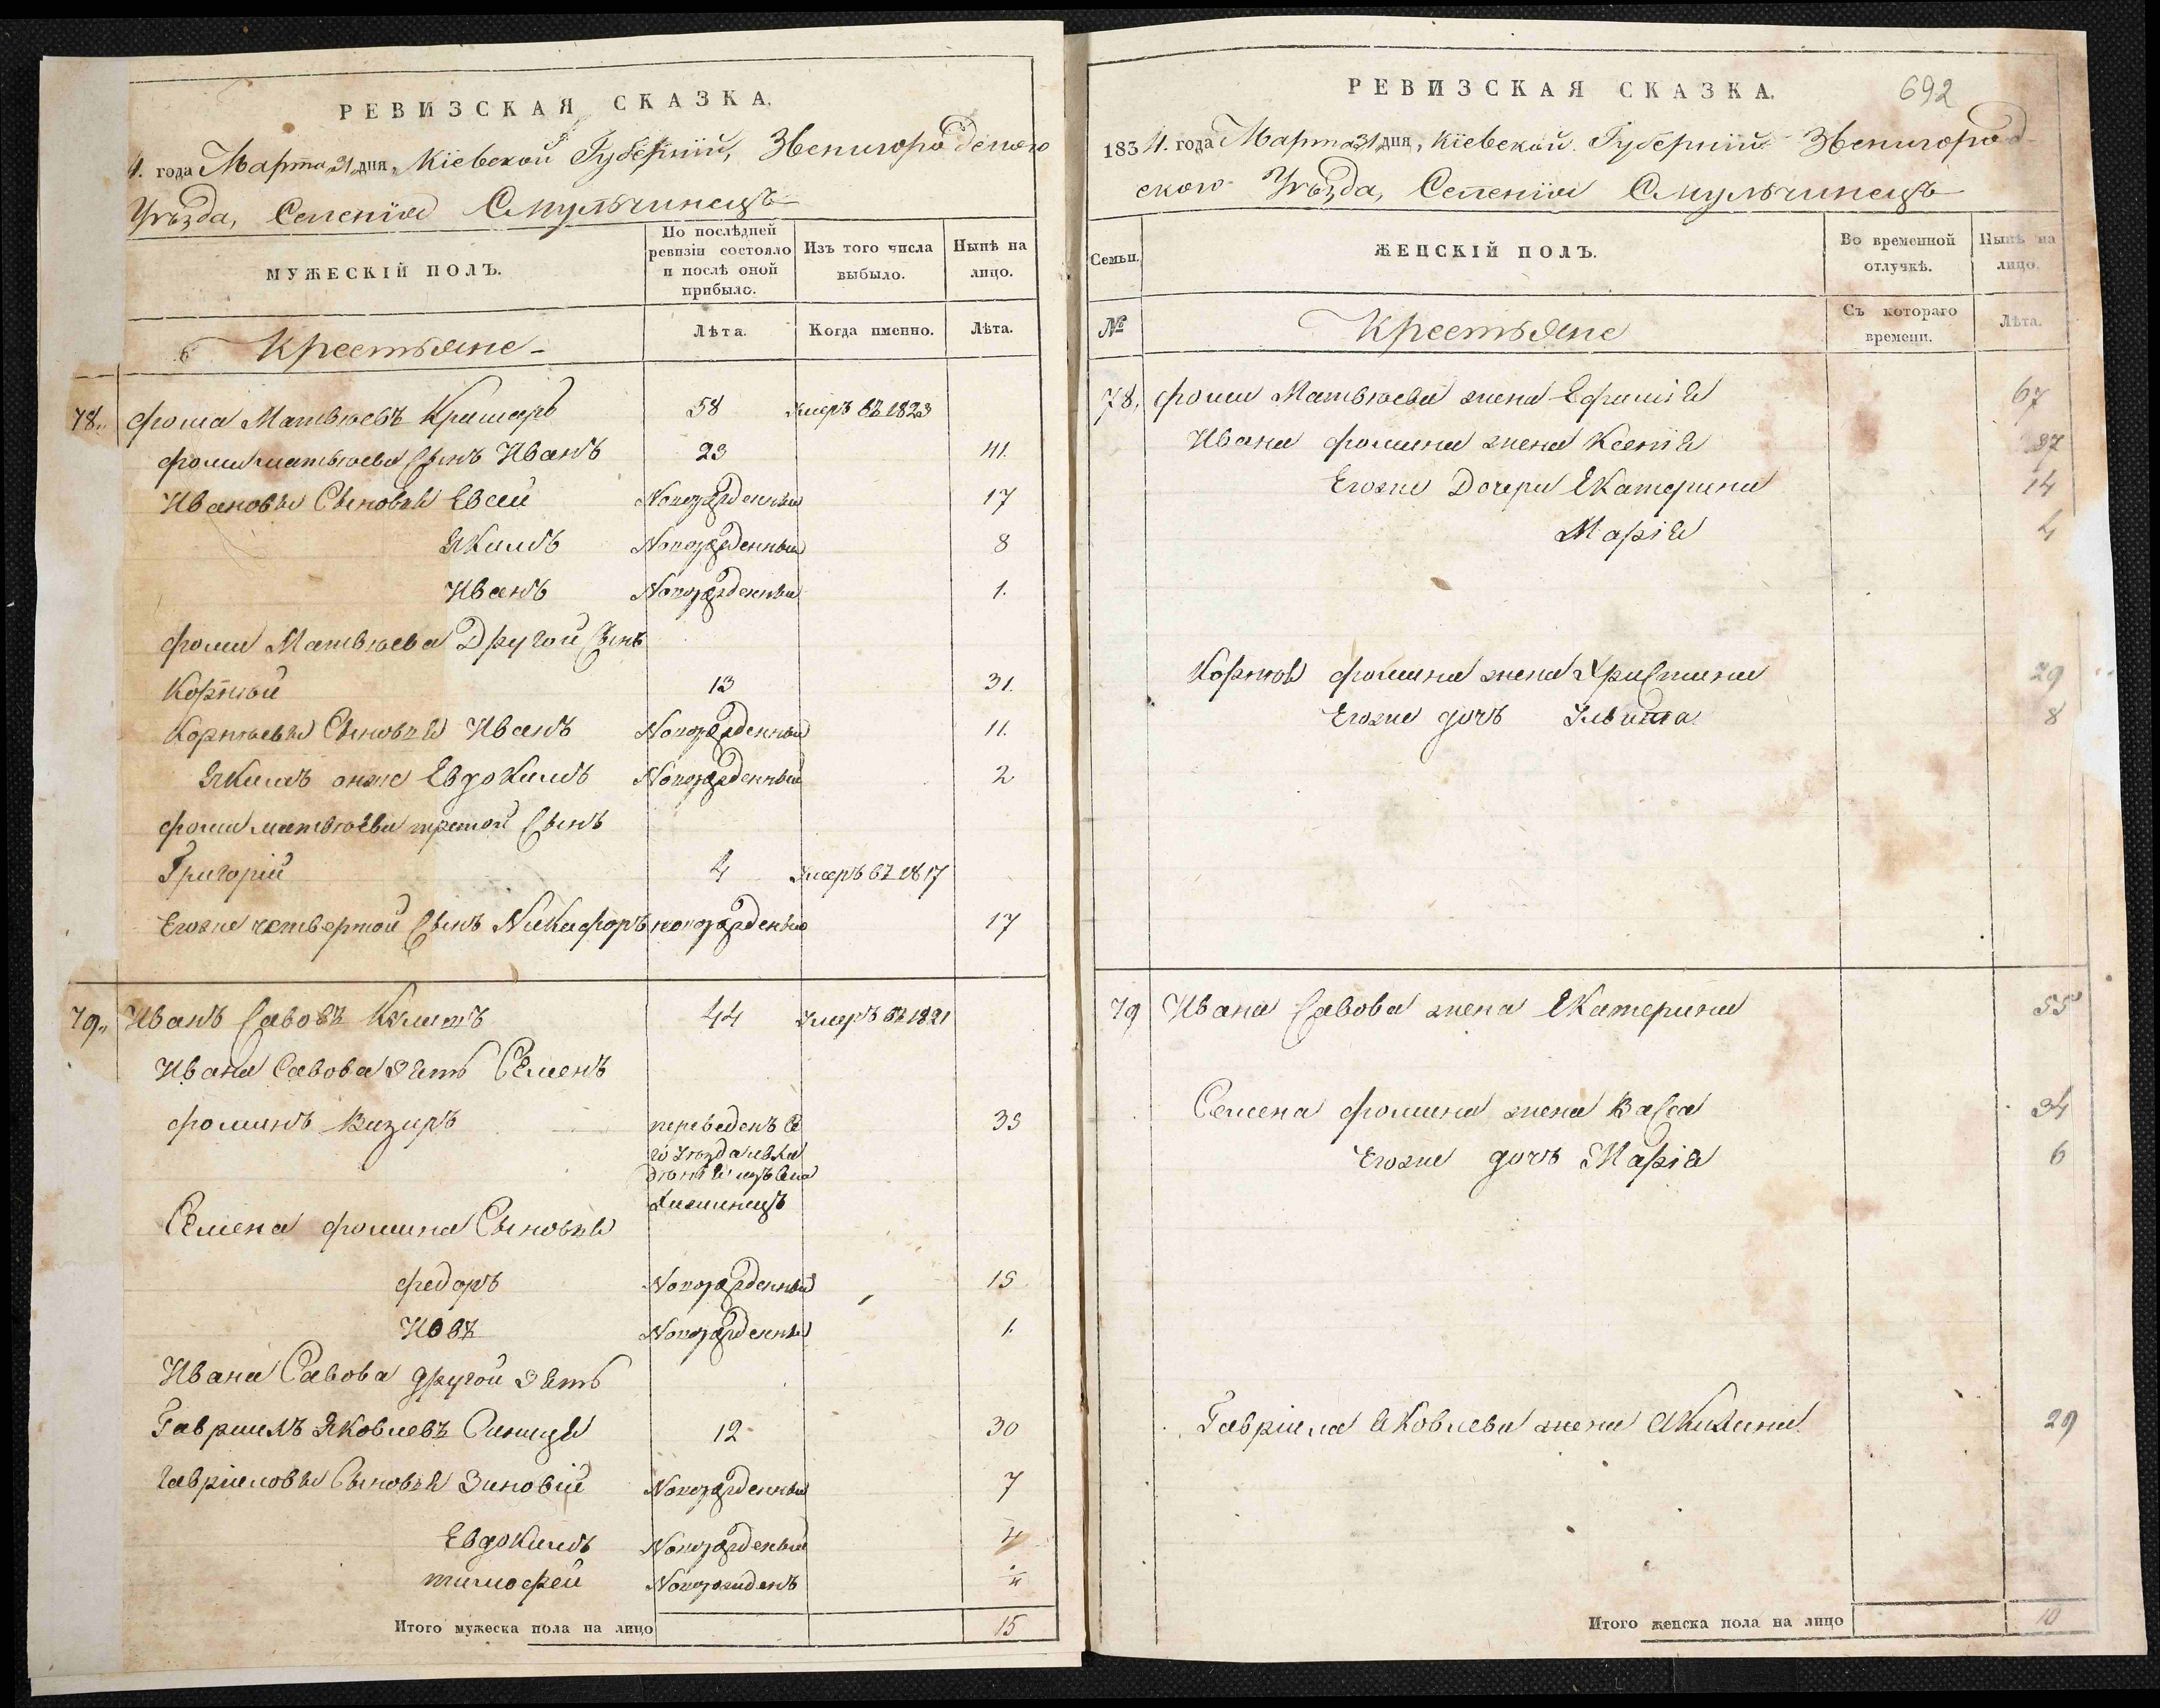 РЕВИЗСКАЯ СКАЗКА.
4. года Марта 31 дня, Кіевской Губерніи, Звенигородского
Уѣзда, Селенія Смульчинецъ
МУЖЕСКІЙ ПОЛЪ.
По послѣдней ревизіи состояло и послѣ оной прибыло.
Изъ того числа выбыло.
Нынѣ на лицо.
Крестьяне
Лѣта.
Когда именно.
Лѣта.
78. Фома Матвѣевъ 58 Умеръ въ 1823
Фомы Матвѣева Сынъ Иванъ 23 41.
Ивановы Сыновья Евсей Новорожденный 17
Якимъ Новорожденный 8
Иванъ Новорожденный 1.
Фомы Матвѣева Другой Сынъ
Корнѣй 13 31.
Корнѣевы Сыновья Иванъ Новорожденный 11.
Якимъ онже Евдокимъ Новорожденный 2
Фомы Матвѣева третой Сынъ
Григорій 4 Умеръ въ 1817
Егоже четвертой Сынъ Никифоръ новорожденный 17
79. Иванъ Савовъ 44 Умеръ въ 1821
Ивана Савова Зять Семенъ
Фоминъ Визиръ переведенъ 35
Семена Фомина Сыновья
Федоръ Новорожденный 15
Новорожденный 1.
Ивана Савова другой Зять
Гавриилъ Яковлевъ Синица 12 30
Гавріиловы Сыновья Зиновій Новорожденный 7
Евдокимъ Новорожденный 4
тимофей Новорожденъ
Итого мужеска пола на лицо 15
РЕВИЗСКАЯ СКАЗКА.
692
1834. года Марта 31 дня, Кіевской Губерніи Звенигород-
ского Уѣзда, Селенія Смульчинецъ
Семьи.
ЖЕНСКІЙ ПОЛЪ.
Во временной отлучкѣ.
Нынѣ на лицо.
№
Крестьяне
Съ котораго времени.
Лѣта.
78. Фомы Матвѣева жена Ефимія 67
Ивана Фомина жена Ксенія 37
Егоже Дочери Екатерина 14
Марія 4
Корнѣя Фомина жена Христина 29
Егоже дочь 8
79 Ивана Савова жена Екатерина 55
Семена Фомина жена Васса 34
Егоже дочь Марія 6
Гавріила Яковлева жена Акилина 29
Итого женска пола на лицо 10